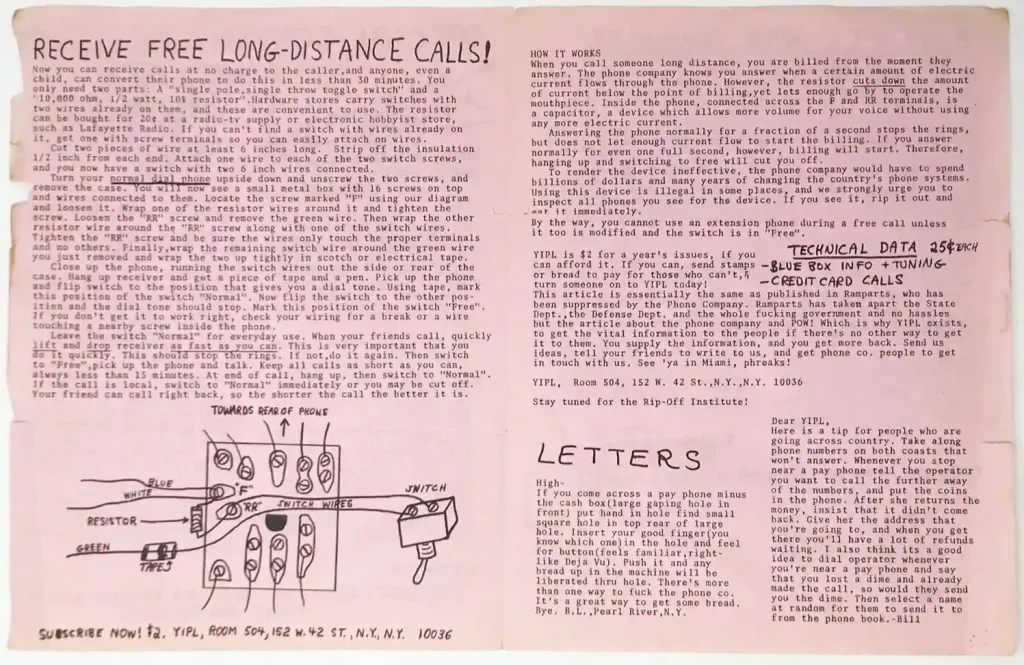 RECEIVE FREE LONG-DISTANCE CALLS!
Now you can receive calls at no charge to the caller,and anyone, even a
child, can convert their phone to do this in less than 30 minutes. You
only need two parts: A "single pole,single throw toggle switch" and a
"10,000 ohm, 1/2 watt, 10% resistor".Hardware stores carry switches with
two wires already on them, and these are convenient to use. The resistor
can be bought for 20¢ at a radio-tv supply or electronic hobbyist store,
such as Lafayette Radio. If you can't find a switch with wires already on
it, get one with screw terminals so you can easily attach on wires.
Cut two pieces of wire at least 6 inches long. Strip off the insulation
1/2 inch from each end. Attach one wire to each of the two switch screws,
and you now have a switch with two 6 inch wires connected.
Turn your normal dial phone upside down and unscrew the two screws, and
remove the case. You will now see a small metal box with 16 screws on top
and wires connected to them. Locate the screw marked "F" using our diagram
and loosen it. Wrap one of the resistor wires around it and tighten the
screw. Loosen the "RR" screw and remove the green wire. Then wrap the other
resistor wire around the "RR" screw along with one of the switch wires.
Tighten the "RR" screw and be sure the wires only touch the proper terminals
and no others. Finally,wrap the remaining switch wire around the green wire
you just removed and wrap the two up tightly in scotch or electrical tape.
Close up the phone, running the switch wires out the side or rear of the
case. Hang up receiver and get a piece of tape and a pen. Pick up the phone
and flip switch to the position that gives you a dial tone. Using tape, mark
this position of the switch "Normal". Now flip the switch to the other pos-
ition and the dial tone should stop. Mark this position of the switch "Free".
If you don't get it to work right, check your wiring for a break or a wire
touching a nearby screw inside the phone.
Leave the switch "Normal" for everyday use. When your friends call, quickly
lift and drop receiver as fast as you can. This is very important that you
do it quickly. This should stop the rings. If not,do it again. Then switch
to "Free",pick up the phone and talk. Keep all calls as short as you can,
always less than 15 minutes. At end of call, hang up, then switch to "Normal".
If the call is local, switch to "Normal" immediately or you may be cut off.
Your friend can call right back, so the shorter the call the better it is.
TOWARDS REAR OF PHONE
BLUE
WHITE
"F"
"RR"
SWITCH WIRES
SWITCH
RESISTOR
GREEN
TAPES
SUBSCRIBE NOW! $2. YIPL, ROOM 504, 152 W. 42 ST., N.Y., N.Y. 10036
HOW IT WORKS
When you call someone long distance, you are billed from the moment they
answer. The phone company knows you answer when a certain amount of electric
current flows through the phone. However, the resistor cuts down the amount
of current below the point of billing,yet lets enough go by to operate the
mouthpiece. Inside the phone, connected across the F and RR terminals, is
a capacitor, a device which allows more volume for your voice without using
any more electric current.
Answering the phone normally for a fraction of a second stops the rings,
but does not let enough current flow to start the billing. If you answer
normally for even one full second, however, billing will start. Therefore,
hanging up and switching to free will cut you off.
To render the device ineffective, the phone company would have to spend
billions of dollars and many years of changing the country's phone systems.
Using this device is illegal in some places, and we strongly urge you to
inspect all phones you see for the device. If you see it, rip it out and
eat it immediately.
By the way, you cannot use an extension phone during a free call unless
it too is modified and the switch is in "Free".
YIPL is $2 for a year's issues, if you
can afford it. If you can, send stamps
or bread to pay for those who can't,&
turn someone on to YIPL today!
TECHNICAL DATA 25¢ EACH
-BLUE BOX INFO + TUNING
-CREDIT CARD CALLS
This article is essentially the same as published in Ramparts, who has
been suppressed by the Phone Company. Ramparts has taken apart the State
Dept.,the Defense Dept. and the whole fucking government and no hassles
but the article about the phone company and POW! Which is why YIPL exists,
to get the vital information to the people if there's no other way to get
it to them. You supply the information, and you get more back. Send us
ideas, tell your friends to write to us, and get phone co. people to get
in touch with us. See 'ya in Miami, phreaks!
YIPL, Room 504, 152 W. 42 St.,N.Y.,N.Y. 10036
Stay tuned for the Rip-Off Institute!
LETTERS
High-
If you come across a pay phone minus
the cash box(large gaping hole in
front) put hand in hole find small
square hole in top rear of large
hole. Insert your good finger(you
know which one)in the hole and feel
for button(feels familiar,right-
like Deja Vu). Push it and any
bread up in the machine will be
liberated thru hole. There's more
than one way to fuck the phone co.
It's a great way to get some bread.
Bye. B.L.,Pearl River,N.Y.
Dear YIPL,
Here is a tip for people who are
going across country. Take along
phone numbers on both coasts that
won't answer. Whenever you stop
near a pay phone tell the operator
you want to call the further away
of the numbers, and put the coins
in the phone. After she returns the
money, insist that it didn't come
back. Give her the address that
you're going to, and when you get
there you'll have a lot of refunds
waiting. I also think its a good
idea to dial operator whenever
you're near a pay phone and say
that you lost a dime and already
made the call, so would they send
you the dime. Then select a name
at random for them to send it to
from the phone book.-Bill